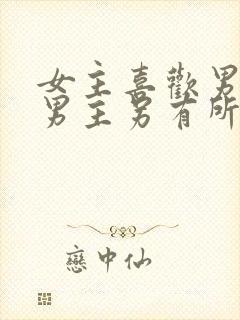 女主喜歡男
男主另有所
戀中仙